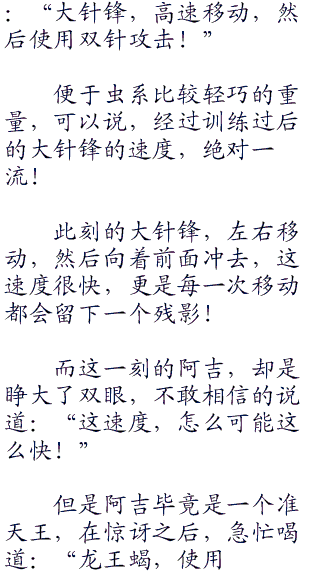 ：“大针锋，高速移动，然
后使用双针攻击！”
便于虫系比较轻巧的重
量，可以说，经过训练过后
的大针锋的速度，绝对一
流！
此刻的大针锋，左右移
动，然后向着前面冲去，这
速度很快，更是每一次移动
都会留下一个残影！
而这一刻的阿吉，却是
睁大了双眼，不敢相信的说
道：“这速度，怎么可能这
么快！”
但是阿吉毕竟是一个准
天王，在惊讶之后，急忙喝
道：“龙王蝎，使用